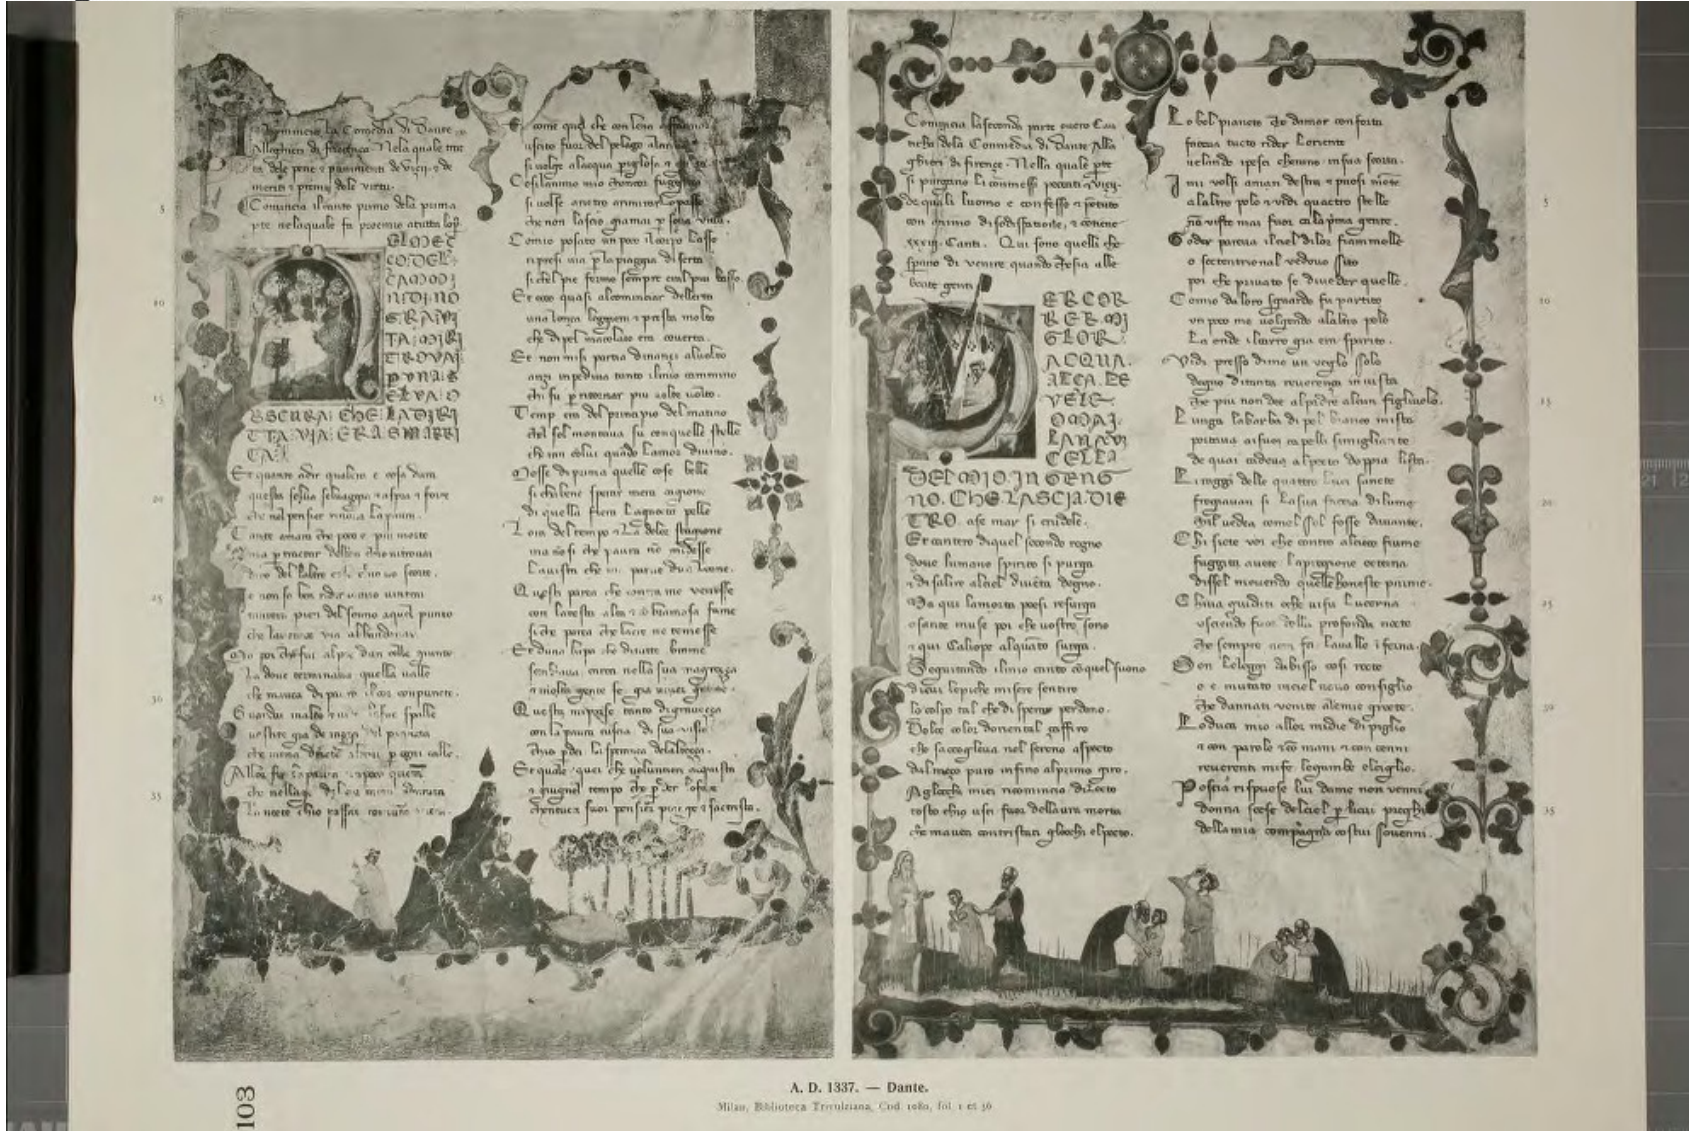 Comincia la Comedia di Dante
Alleghieri di firençe. Nela quale trac
ta dele pene & punimenti de viçij & de
meriti & premij dele virtu.
5
Comincia il canto primo dela prima
pte nela quale fa proemio atutta lop
NELMEÇ
ÇO.DEL.
CAMMI
10
NDINO
STRAVI
TA.MIRI
TROVAI.
PVNAS
ELVA.O
15
BSCVRA: CHE LADIRI
TTA.VIA: ERA SMARRI
TA.
Et quanto adir qualera e cosa dura
20
questa selva selvaggia & aspra & forte
che nel pensier rinova la paura.
Tante amara che poco e piu morte
ma p tractar del ben chio vi trovai
diro del laltre cose
I non so ben ridir
25
tantera pien del sonno aquel punto
che la verace via abbandonai
Ma poi chefui alpie dun colle giunto
la dove terminava quella valle
che mavea di paura il cor conpuncto.
30
Guardai inalto & vidi le sue spalle
vestite gia de raggi del pianeta
che mena dricto altrui p ogni calle.
Allor fu la paura un poco queta
che nellago del cor
35
la nocte chio passai con tanta
E come quei che con lena affannata
uscito fuor del pelago alariva
si volge alacqua pigliosa &
Cosi lanimo mio chancor fuggiva
si volse aretro arimirar lo passo
che non lascio giamai psona viva.
Comio posato un poco il corpo lasso
ripresi via p la piaggia diserta
si chel pie fermo sempre eral piu basso.
Et ecco quasi alcominciar dellerta
una lonça leggiera & presta molto
che di pel maculato era coverta.
Et non mi si partia dinançi alvolto
ançi inpediva tanto ilmio cammino
chi fu p ritornar piu volte volto.
Temp era del principio del matino
el sol montava su conquelle stelle
cheran colui quando lamor divino.
Mosse di prima quelle cose belle
si cha bene sperar mera cagione
di quella fiera lagaetta pelle
Lora del tempo & la dolce stagione
ma no si che paura no midesse
la vista che mi parve dun leone.
Questi parea che contra me venesse
con latesta alta & co rabbiosa fame
si che parea che laere ne temesse
Et duna lupa che di tutte brame
senbrava carca nella sua magreçça
& molte gente fe gia viver grame.
Questa mi porse tanto di graveçça
con la paura cuscia di sua vista
chio pdei la sperança delalteçça.
Et quale quei che volontieri aquista
& giugnel tempo che pder loface
chentucti suoi pensieri piange & sactrista.
Comincia la seconda parte overo Can
ticha dela Commedia di Dante Alla
ghieri di firençe. Nella quale pte
si purgano li commessi peccati & viçij
de quali luomo e confesso & pentuto
con animo di sodisfactione, & contene
xxxiij. Canti. Qui sono quelli che
sperano di venire quando chesia alle
beate genti
PER COR
RER MI
GLOR
ACQVA.
ALÇA. LE
VELE
OMAI.
LA NAVI
CELLA
DEL MIO. IN GENG
NO. CHE LASCIA DIE
TRO. ase mar si crudele.
Et cantero diquel secondo regno
dove lumano spirito si purga
& di salire alciel diventa degno.
Ma qui lamorta poesi resurga
o sante muse poi che vostro sono
& qui Caliope alquanto surga.
Seguitando ilmio canto co quel suono
dicui lepiche misere sentiro
lo colpo tal che disperar perdono.
Dolce color doriental çaffiro
che saccoglieva nel sereno aspecto
dal meço puro infino alprimo giro.
Agliocchi miei ricomincio dilecto
tosto chio usci fuor dellaura morta
che mavea contristati gliocchi elpecto.
Lo bel pianeto che damor conforta
faceva tucto rider loriente
velando ipesci cherano in sua scorta.
I mi volsi aman destra & puosi mente
5
alaltro polo & vidi quatro stelle
no viste mai fuor cala pma gente.
Goder pareva ilciel dilor fiammelle
o settentrional vedovo sito
poi che privato se di veder quelle.
10
Comio da loro sguardo fu partito
un poco me volgendo alaltro polo
la onde ilcarro gia era sparito.
Vidi presso dime un veglo solo
degno ditanta reverença in vista
15
che piu non dee alpadre alcun figliuolo.
Lunga labarba & di pel bianco mista
portava asuoi capelli simigliante
de quai cadeva alpecto doppia lista.
Li raggi delle quattro luci sancte
20
fregiavan si lasua faccia dilume
chil vedea comel sol fosse davante.
Chi siete voi che contro alcieco fiume
fuggita avete lapregione eterna
dissel movendo quelle honeste piume.
25
Chiva guidati o che vifu lucerna
uscendo fuor della profonda nocte
che sempre nera fa lavalle inferna.
Son leleggi dabisso cosi rocte
o e mutato inciel novo consiglio
30
che dannati venite alemie grocte.
Lo duca mio allor midie dipiglio
& con parole & co mani & con cenni
reverenti mife legambe elciglio.
Poscia rispuose lui dame non venni
35
donna scese delciel p licui prieghi
della mia compagnia costui sovenni.
A. D. 1337. — Dante.
Milan, Biblioteca Trivulziana, Cod. 1080, fol. 1 et 36
103